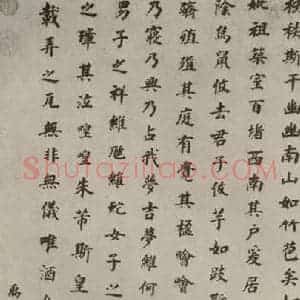 秩斯干幽幽南山如竹苞矣
妣祖築室百堵西南其戶爰居
除鳥鼠攸去君子攸芋如跂
躋殖殖其庭有覺其楹噲噲
乃寢乃興乃占我夢吉夢維何
男子之祥維虺維蛇女子之
之璋其泣喤喤朱芾斯皇
載弄之瓦無非無儀唯酒
Shufazilian.com